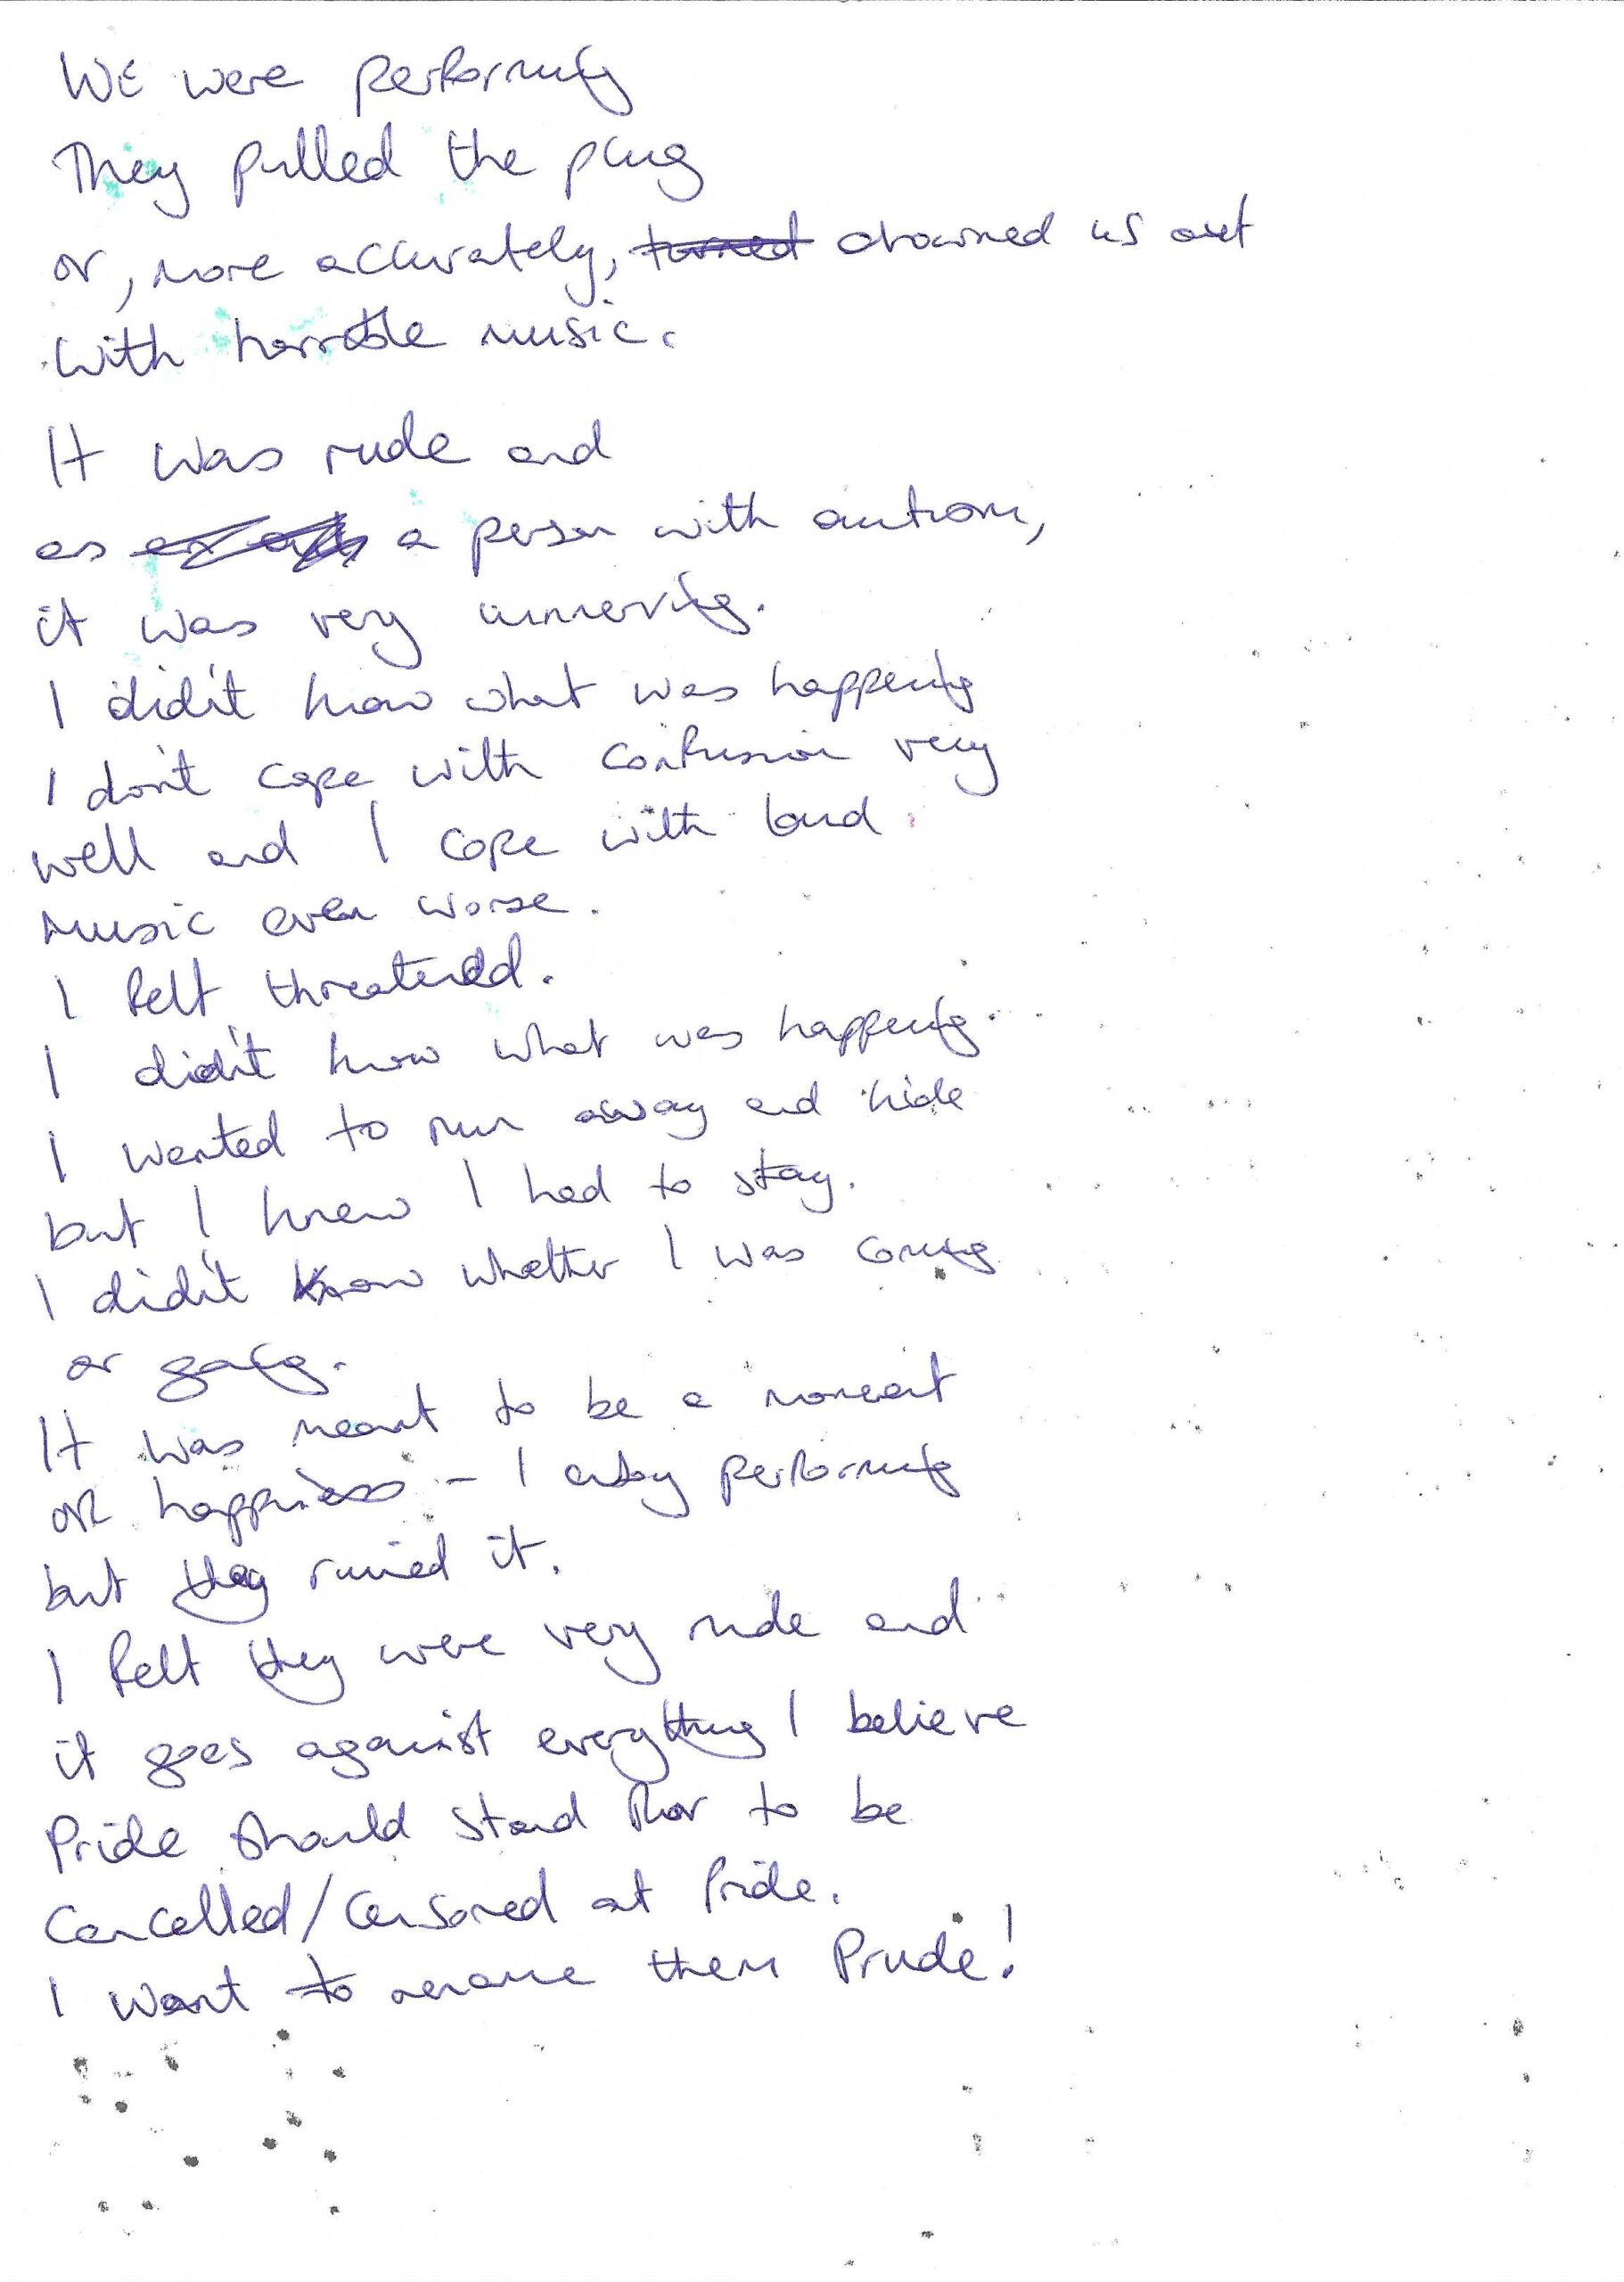 We were performing
They pulled the plug
or, more accurately, turned drowned us out
with horrible music.
It was rude and
as a person with autism,
it was very unnerving.
I didn't know what was happening
I don't cope with confusion very
well and I cope with loud
music even worse.
I felt threatened.
I didn't know what was happening.
I wanted to run away and hide
but I knew I had to stay.
I didn't know whether I was coming
or going.
It was meant to be a moment
of happiness - I enjoy performing
but they ruined it.
I felt they were very rude and
it goes against everything I believe
Pride should stand for to be
Cancelled/Censored at Pride.
I want to rename them Prude!